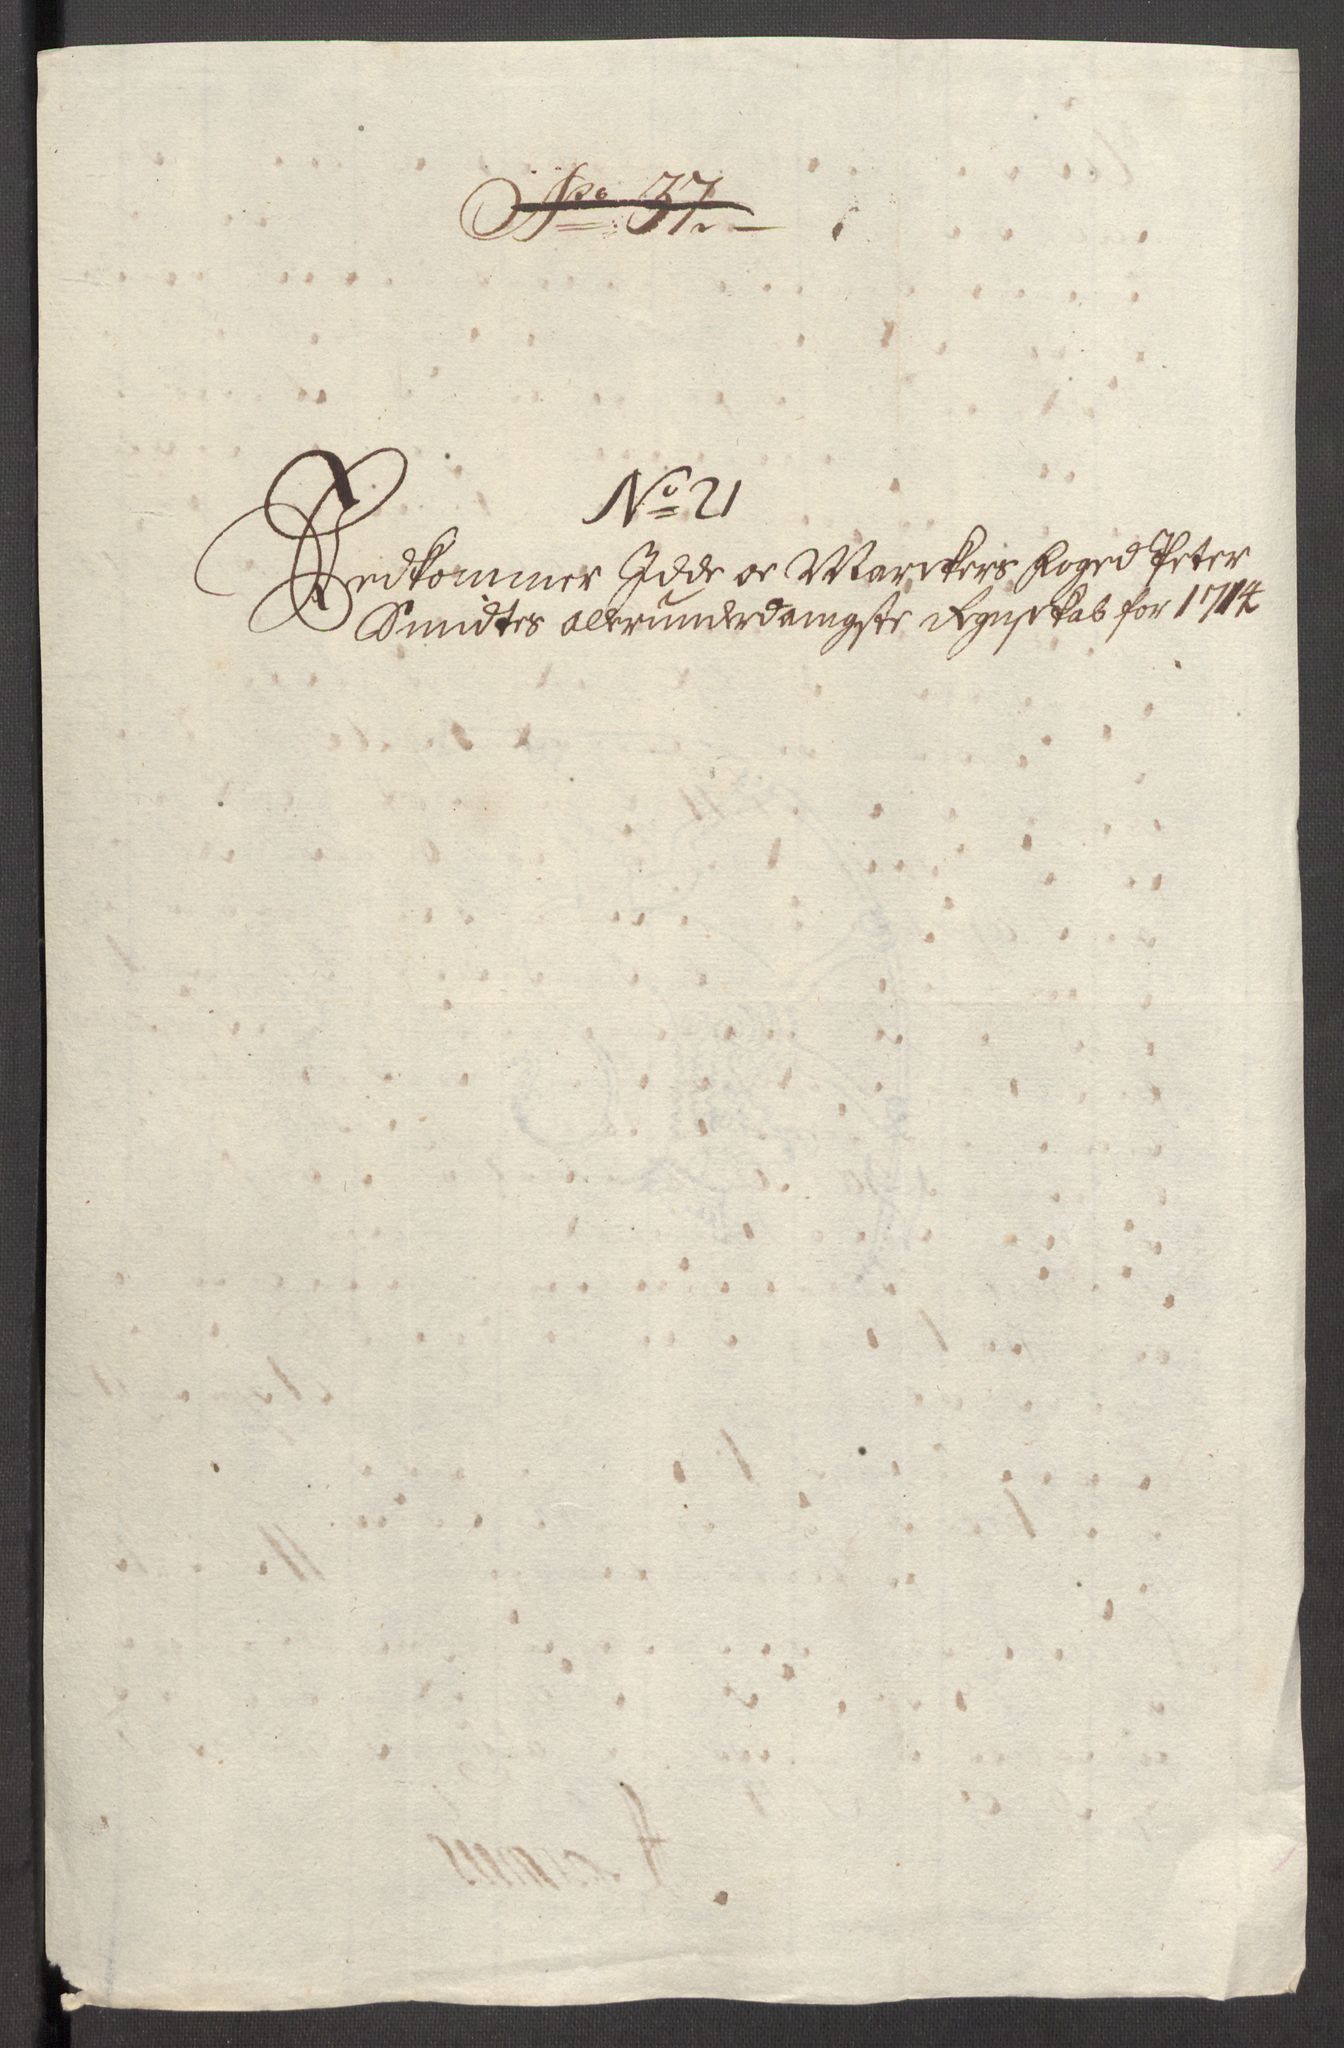 No 37
No 21
Vedkommer Idde oc Marckers Foged Peter
Smidtes allerunderdanigste Regnskab for 1714